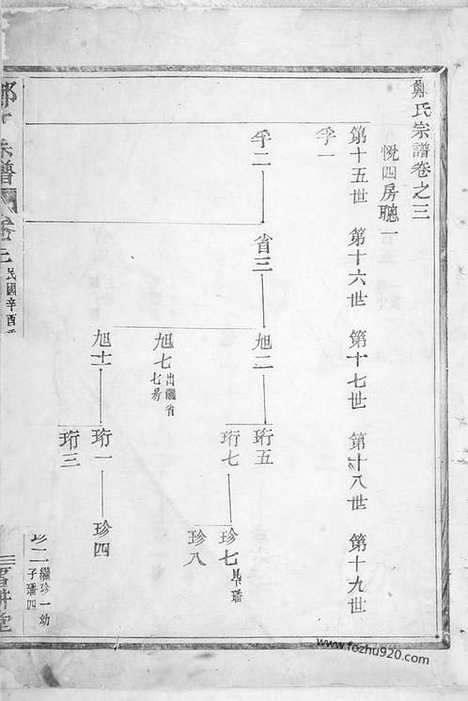 鄭氏宗譜卷之三
悦四房聰一
第十五世 第十六世 第十七世 第十八世 第十九世
孚一
孚二 省三 旭二 珩五
珩七 珍七
珍八
旭七 出繼省七易
旭士 珩一 珍四
珩三
珍二 繼珍一幼子璠四
宗譜 卷三 民國辛酉
www.fozhu920.com